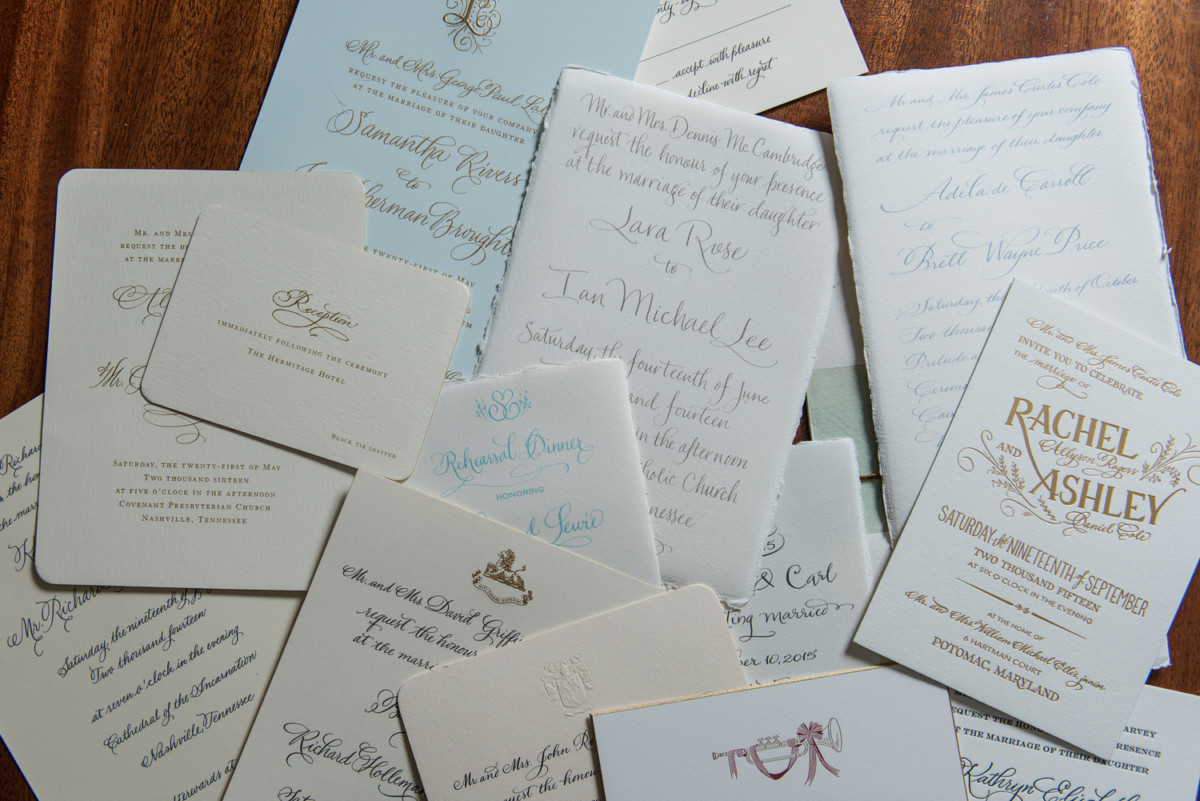 L
Mr. and Mrs. George Paul
REQUEST THE PLEASURE OF YOUR COMPANY
AT THE MARRIAGE OF THEIR DAUGHTER
Samantha Rivers
to
TWENTY-FIRST OF MAY
accept with pleasure
decline with regret
Mr. and Mrs. Dennis Mc Cambridge
request the honour of your presence
at the marriage of their daughter
Lara Rose
to
Ian Michael Lee
Saturday, the fourteenth of June
and fourteen
in the afternoon
Church
Mr. and Mrs. James Curtis Cole
request the pleasure of your company
at the marriage of their daughter
Adela de Carroll
to
Brett Wayne Price
Saturday, the of October
Two
Prelude
MR. AND
REQUEST THE
AT THE
Mr.
SATURDAY, THE TWENTY-FIRST OF MAY
TWO THOUSAND SIXTEEN
AT FIVE O'CLOCK IN THE AFTERNOON
COVENANT PRESBYTERIAN CHURCH
NASHVILLE, TENNESSEE
Reception
IMMEDIATELY FOLLOWING THE CEREMONY
THE HERMITAGE HOTEL
BLACK TIE INVITED
Rehearsal Dinner
HONORING
Lewie
& Carl
married
10, 2015
Mr. and Mrs. James Curtis Cole
INVITE YOU TO CELEBRATE
THE marriage OF
RACHEL
Allyson Rogers
AND
ASHLEY
Daniel Cole
SATURDAY the NINETEENTH of SEPTEMBER
TWO THOUSAND FIFTEEN
AT SIX O'CLOCK IN THE EVENING
AT THE HOME OF
Mr. and Mrs. William Michael Etter, junior
6 HARTMAN COURT
POTOMAC, MARYLAND
Richard
the
Mr. Richard
Saturday, the nineteenth of
Two thousand fourteen
at seven o'clock in the evening
Cathedral of the Incarnation
Nashville, Tennessee
afterwards at
Mr. and Mrs. David
request the honour
at the
Richard
Mr. and Mrs. John
request the
HARVEY
REQUEST THE PRESENCE
AT THE MARRIAGE OF THEIR DAUGHTER
Kathryn